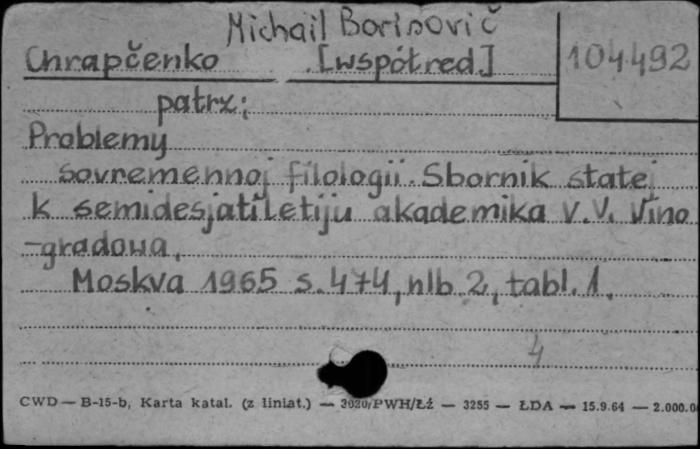 Michail Borisovič
Chrapčenko [współred.] 104492
patrz:
Problemy
sovremennoj filologii. Sbornik statej
k semidesjatiletiju akademika V.V. Vino
-gradova,
Moskva 1965 s. 474, nlb 2, tabl. 1.
4
CWD — B-15-b, Karta katal. (z liniat.) — 3020/PWH/Łź — 3255 — ŁDA — 15.9.64 — 2.000.0